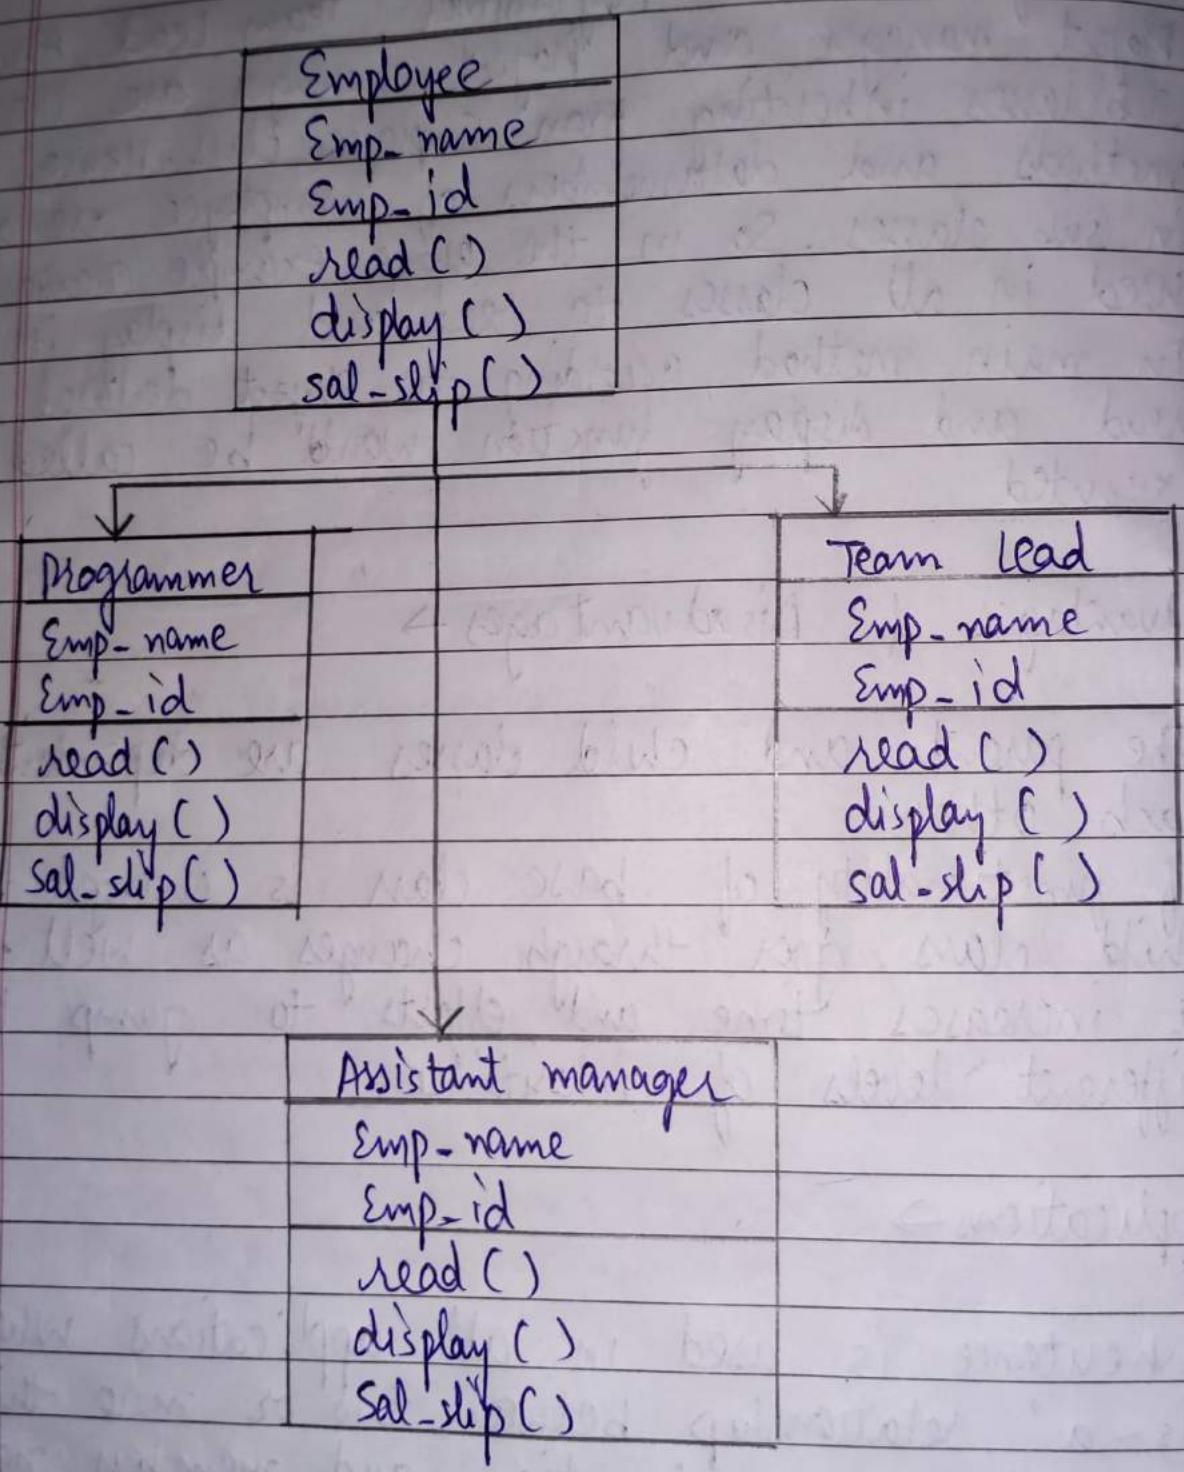 Employee
Emp_name
Emp_id
read()
display()
sal_slip()
Programmer
Emp_name
Emp_id
read()
display()
sal_slip()
Team Lead
Emp_name
Emp_id
read()
display()
sal_slip()
Assistant manager
Emp_name
Emp_id
read()
display()
Sal_slip()